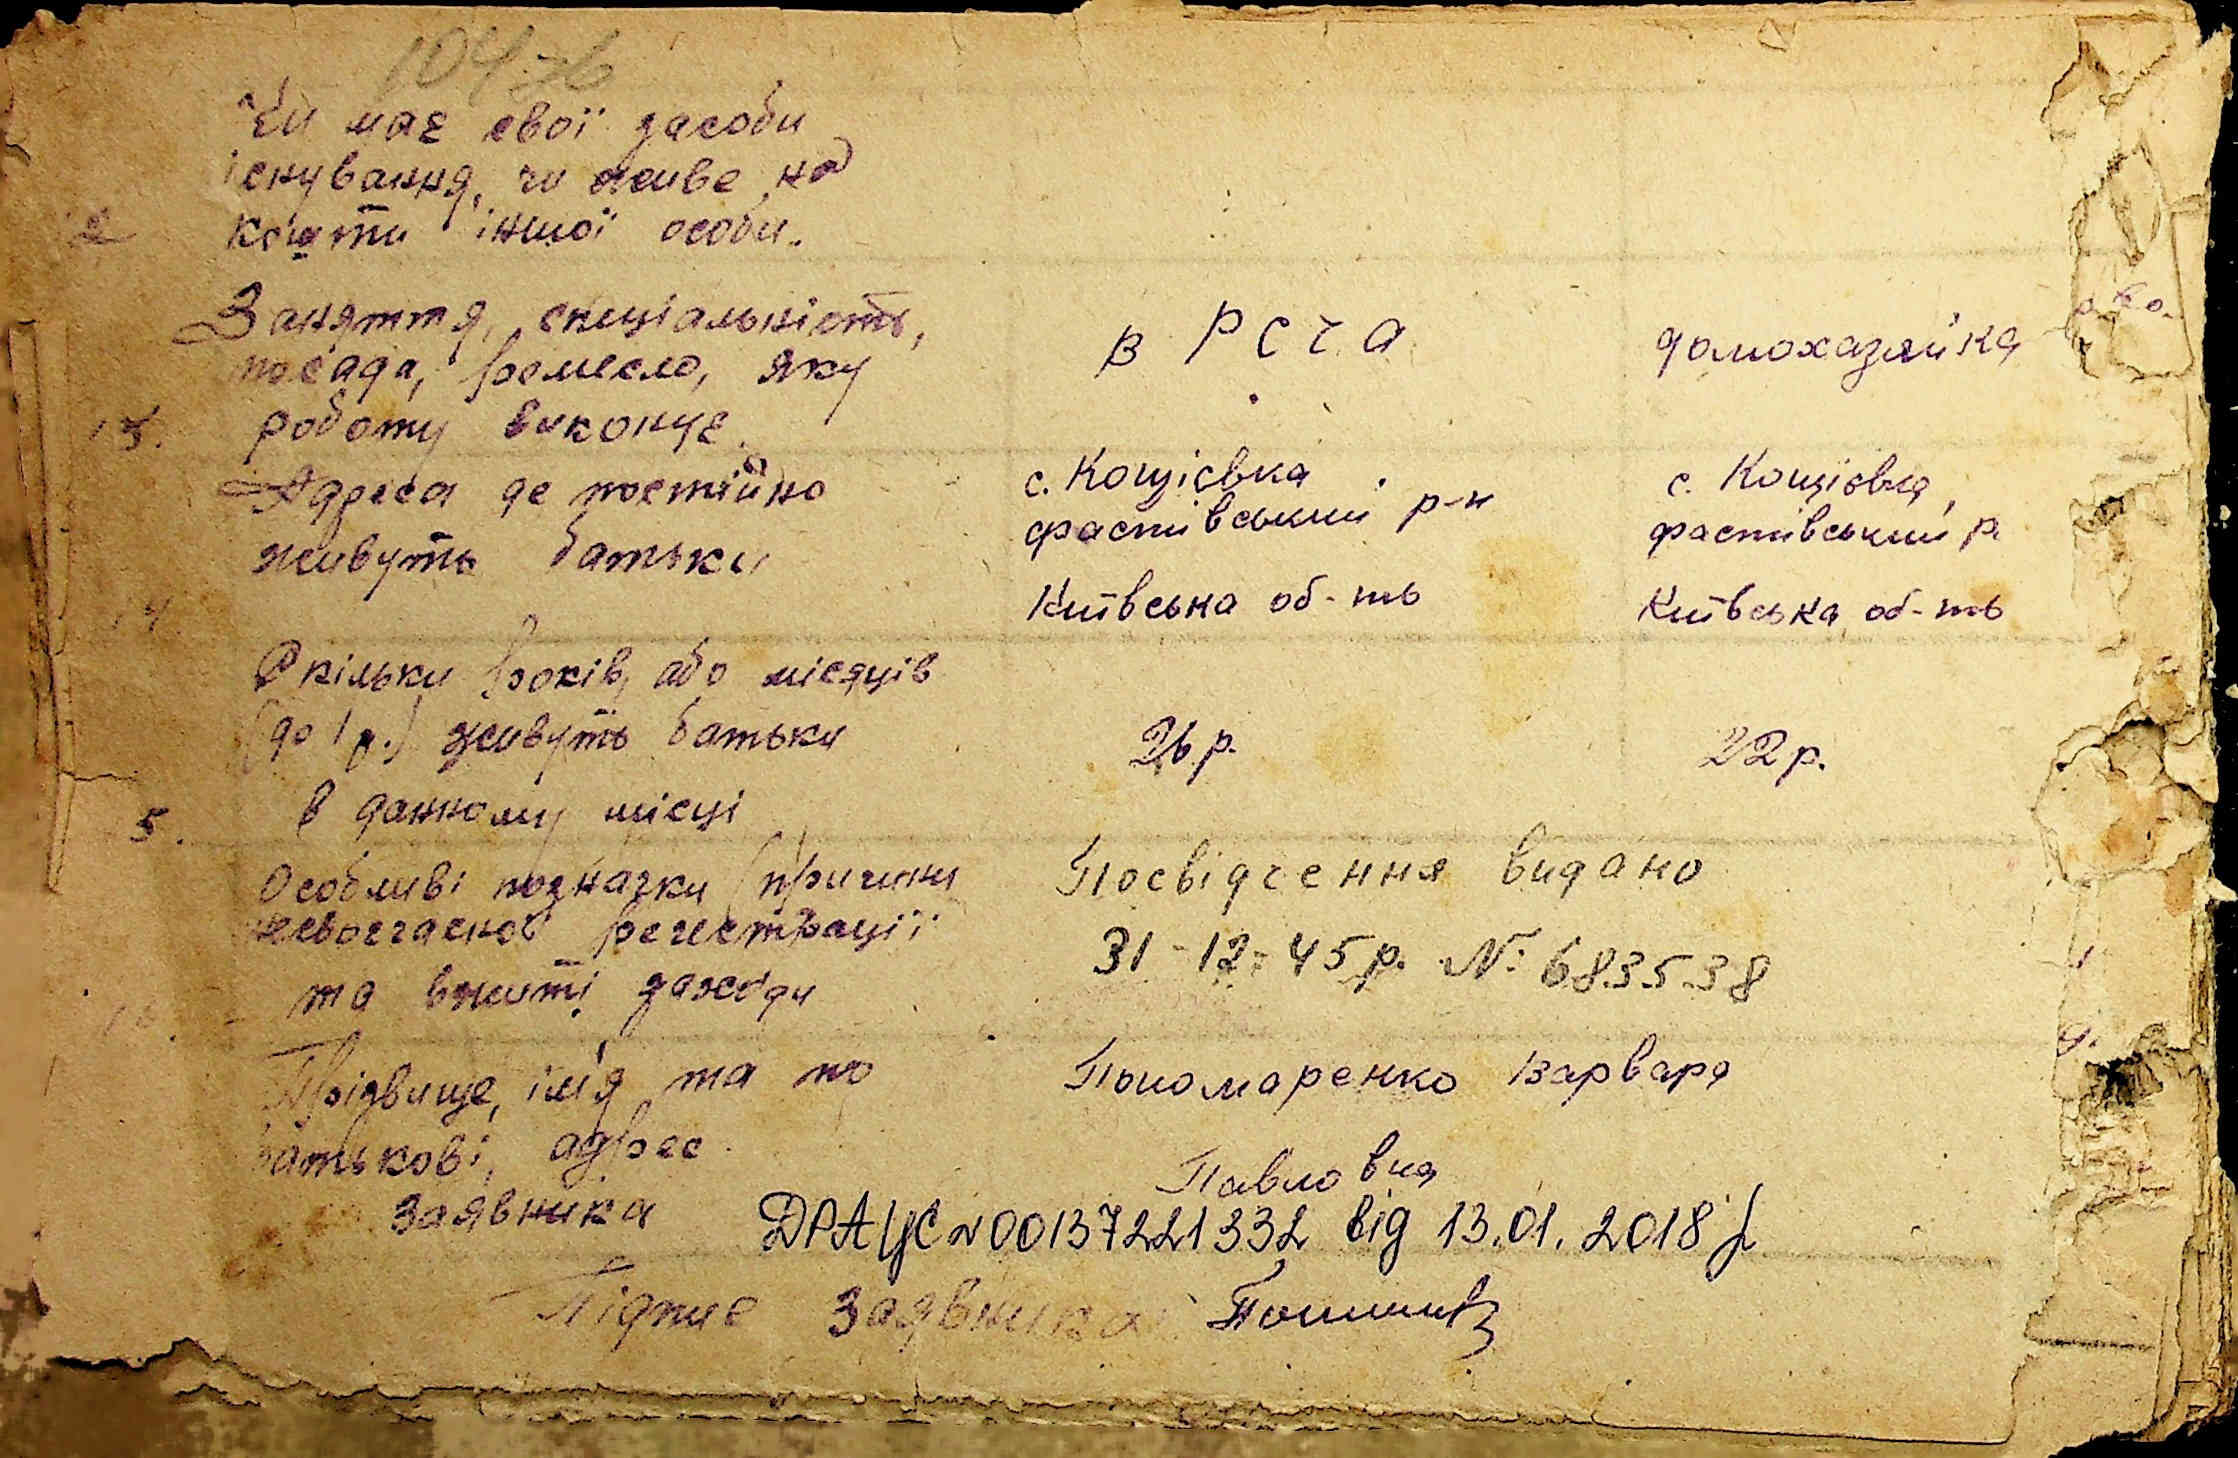 104 зв
Чи має свої засоби
існування, чи живе на
12 кошти іншої особи.
Заняття, спеціальність,
посада, ремесло, яку
13. роботу виконує.
в РСЧА
домохазяйка
Адреса де постійно
живуть батьки
14.
с. Кощіївка
фастівський р-н
Київська об-ть
с. Кощіївка,
фастівський р.
Київська об-ть
Скільки років, або місяців
(до 1 р.) живуть батьки
5. в данному місці
26 р.
22 р.
Особливі позначки (причини
несвоєчасної регестрації
та вжиті заходи
Посвідчення видано
31-12-45 р. №: 683538
Прізвище, ім'я та по
батькові, адрес
заявника
Пономаренко Варвара
Павловна
ДРАЦС №00137221332 від 13.01.2018 р
Підпис заявника